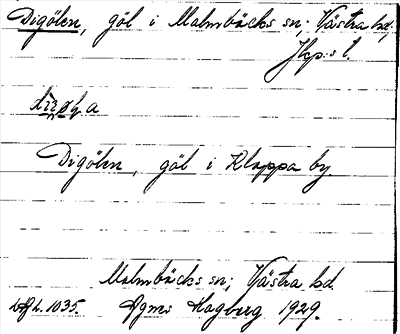 Digölen, göl i Malmbäcks sn; Västra hd,
Jkp:s l.
Digölen, göl i Kloppa by.
Malmbäcks sn; Västra hd
1035. Hagberg 1929.